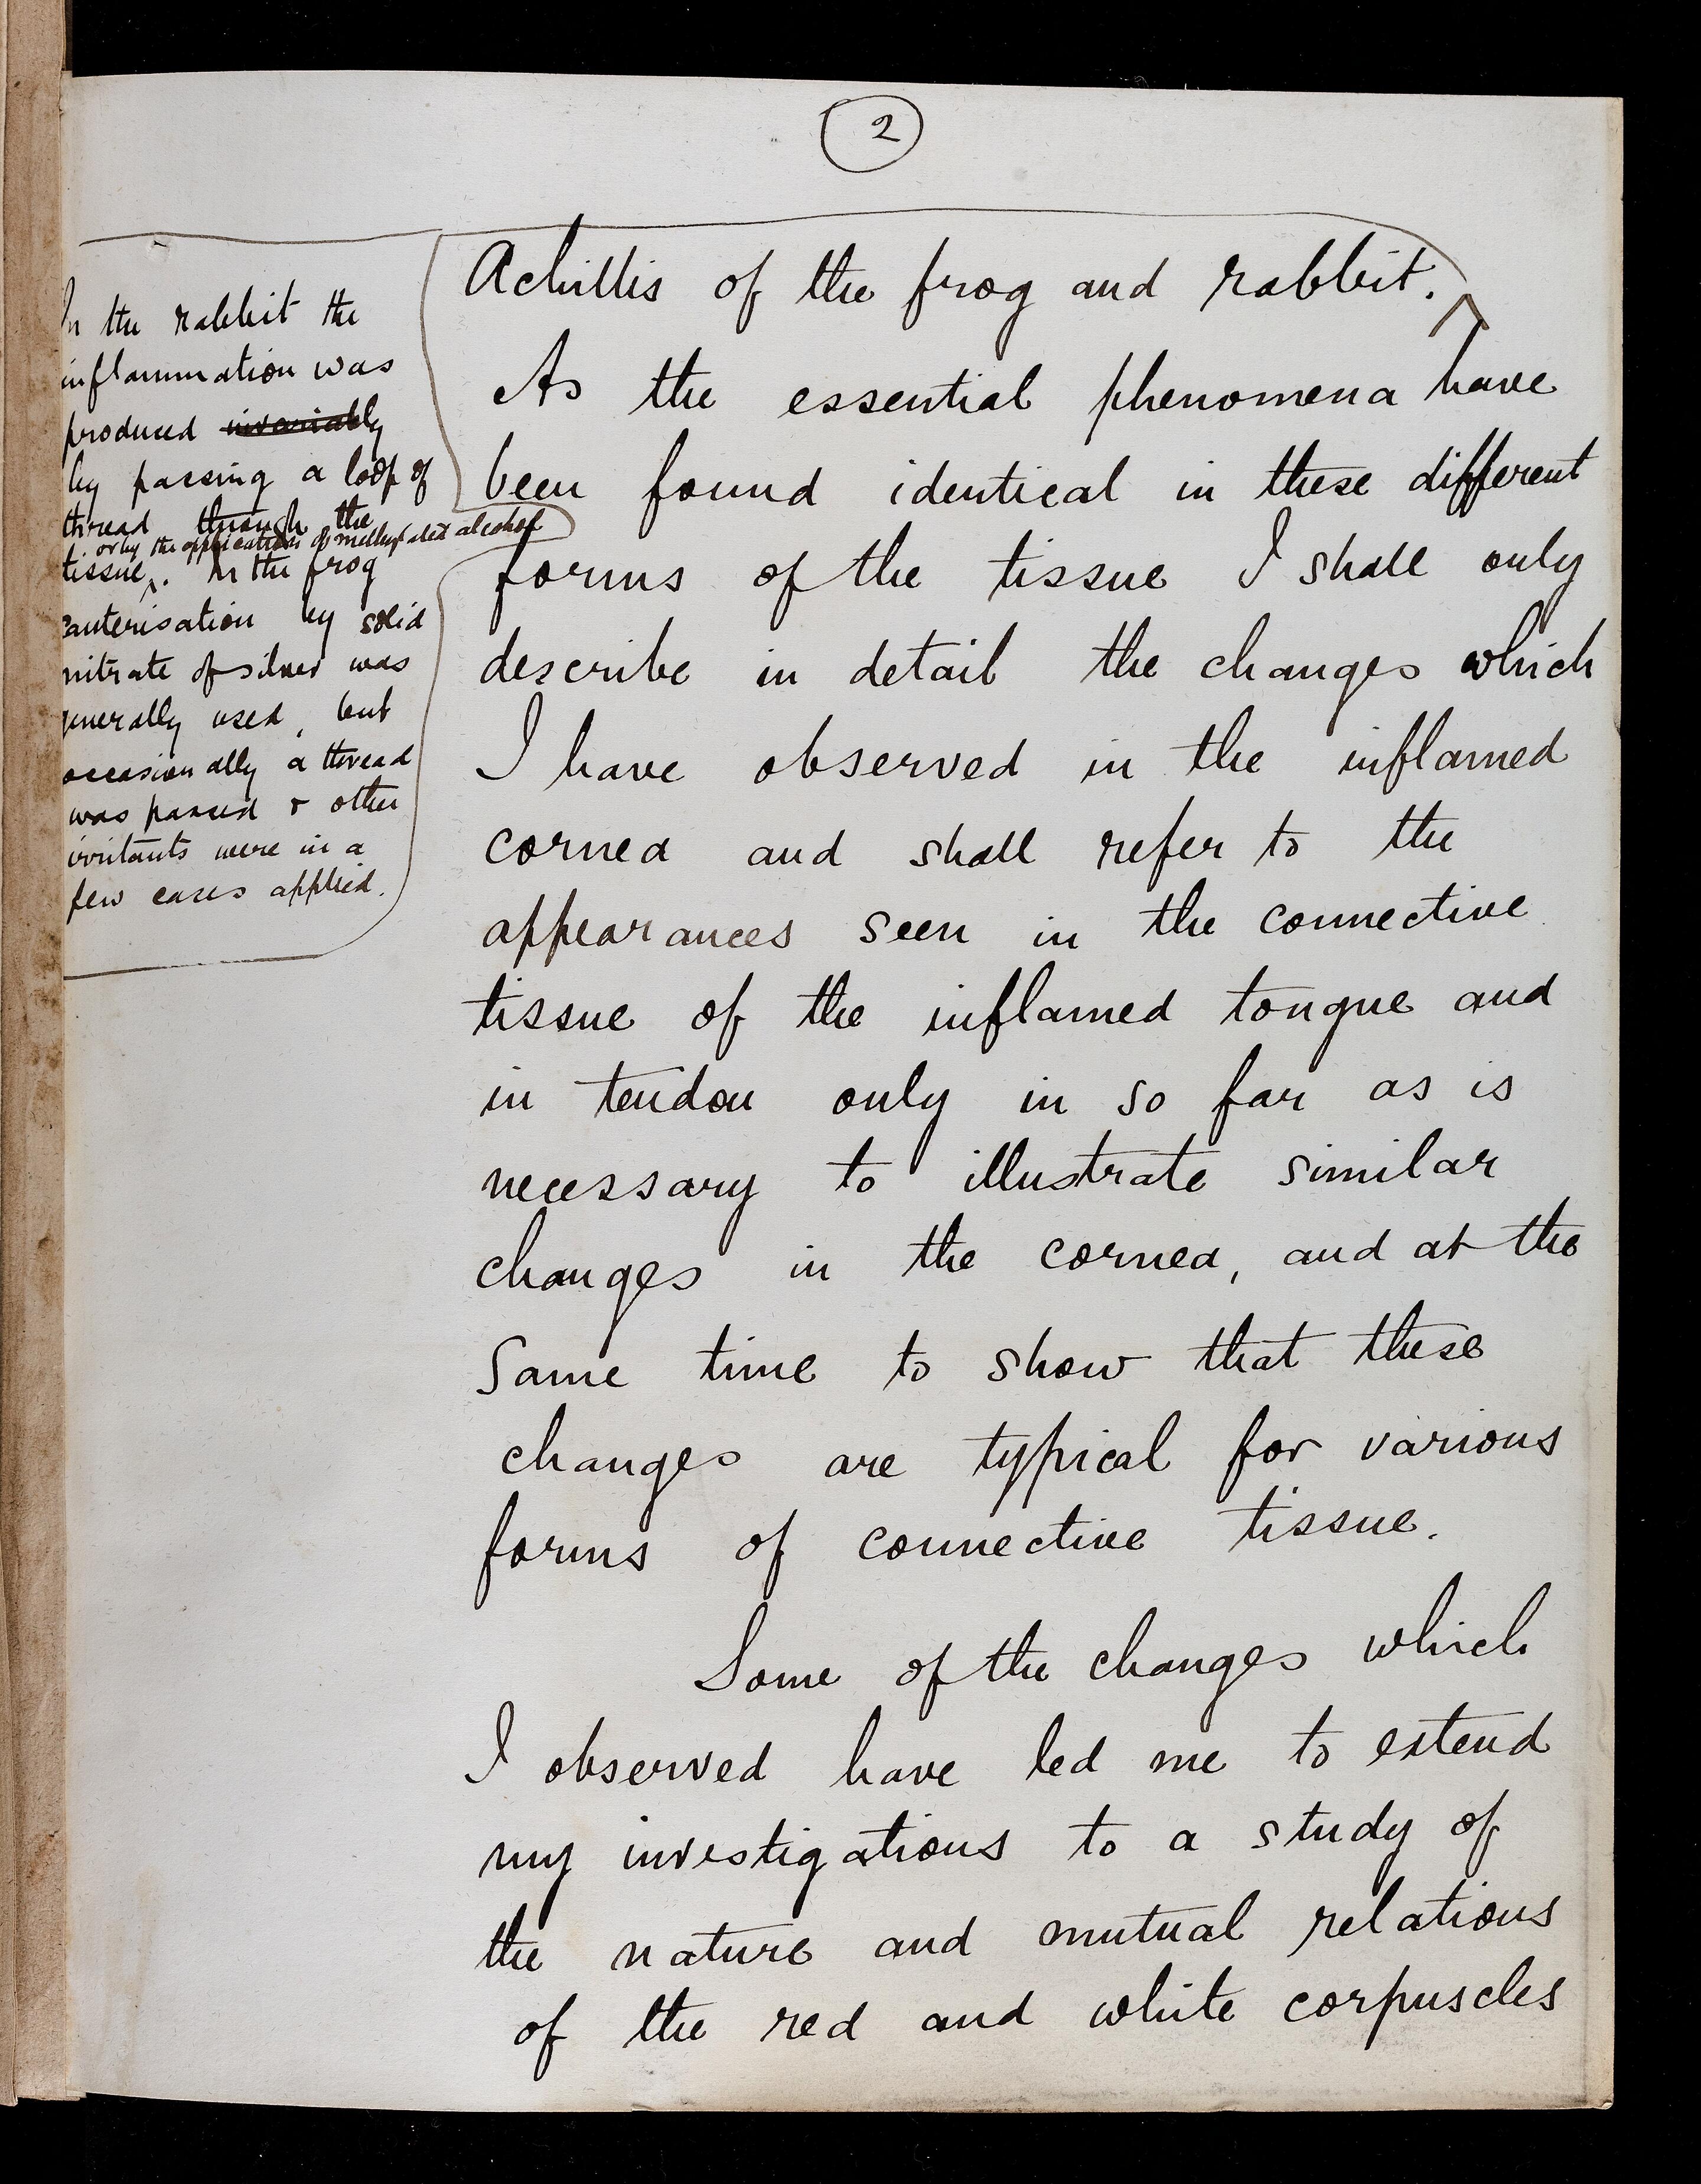 2
Achillis of the frog and rabbit.
In the rabbit the
inflammation was
produced invariably
by passing a loop of
thread through the
or by the application of methylated alcohol
tissue. In the frog
cauterisation by solid
nitrate of silver was
generally used, but
occasionally a thread
was passed & other
irritants were in a
few cases applied.
As the essential phenomena have
been found identical in these different
forms of the tissue I shall only
describe in detail the changes which
I have observed in the inflamed
cornea and shall refer to the
appearances seen in the connective
tissue of the inflamed tongue and
in tendon only in so far as is
necessary to illustrate similar
changes in the cornea, and at the
same time to show that these
changes are typical for various
forms of connective tissue.
Some of the changes which
I observed have led me to extend
my investigations to a study of
the nature and mutual relations
of the red and white corpuscles